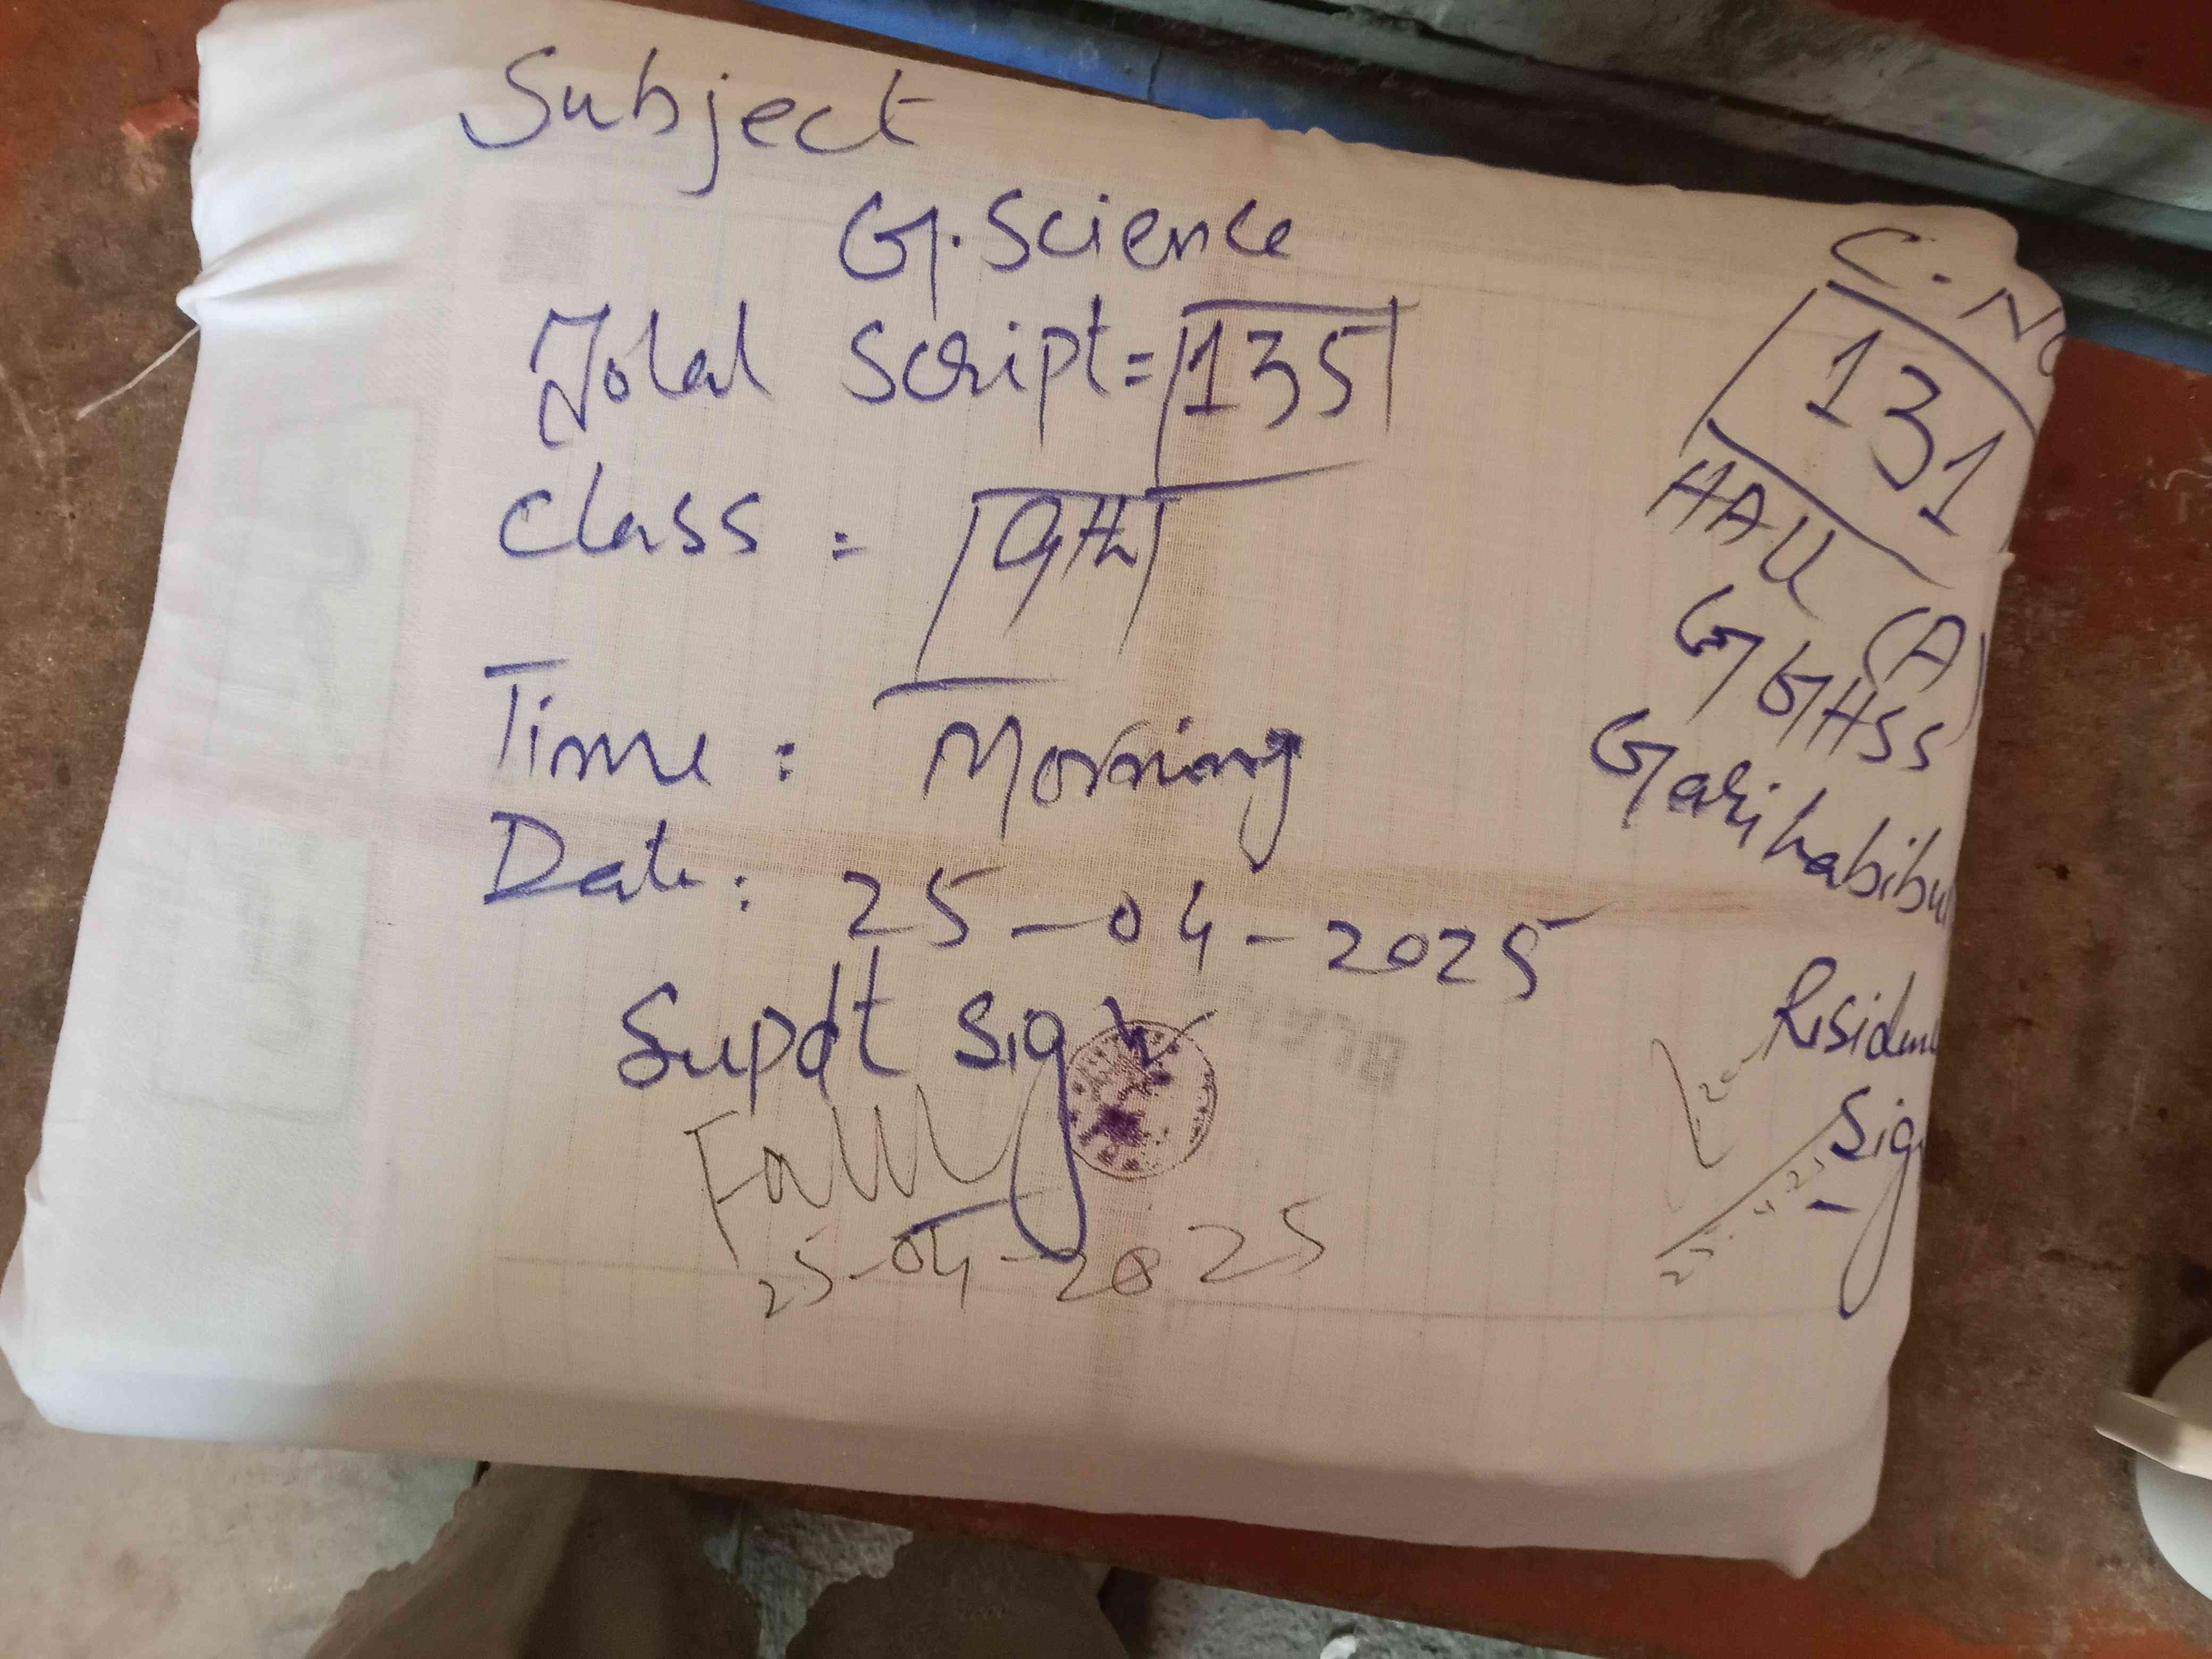 Subject
G. Science
Total Script = 135
Class = 9th
Time : Morning
Date : 25-04-2025
Supdt Sig
25-04-2025
C. No
131
HALL (A)
GGHSS
Garihabibu
Residen
Sig